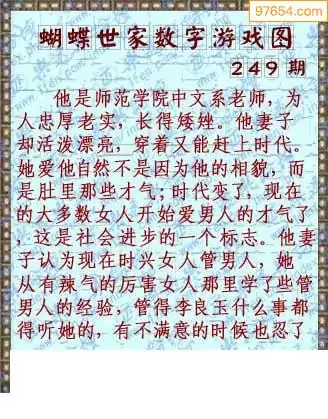 97654.com
蝴蝶世家数字游戏图
249 期
他是师范学院中文系老师，为
人忠厚老实，长得矮矬。他妻子
却活泼漂亮，穿着又能赶上时代。
她爱他自然不是因为他的相貌，而
是肚里那些才气；时代变了，现在
的大多数女人开始爱男人的才气了
，这是社会进步的一个标志。他妻
子认为现在时兴女人管男人，她
从有辣气的厉害女人那里学了些管
男人的经验，管得李良玉什么事都
得听她的，有不满意的时候也忍了